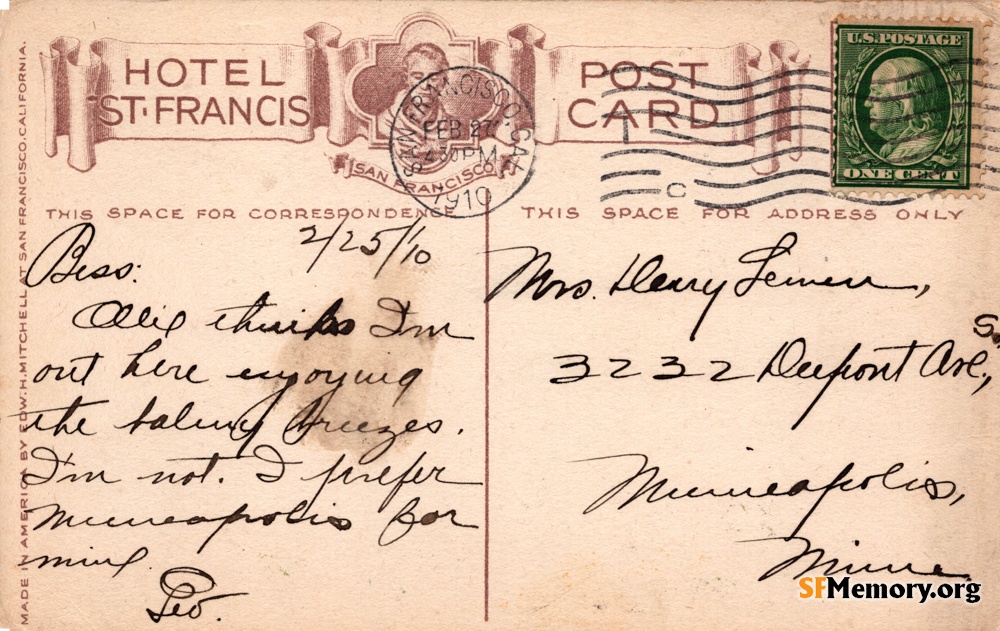 HOTEL
ST. FRANCIS
SAN FRANCISCO
POST
CARD
SAN FRANCISCO, CAL.
FEB 27
4 30 PM
1910
C
U.S. POSTAGE
ONE CENT
THIS SPACE FOR CORRESPONDENCE
THIS SPACE FOR ADDRESS ONLY
MADE IN AMERICA BY EDW. H. MITCHELL AT SAN FRANCISCO, CALIFORNIA.
2/25/10
Bess:
Ollie thinks I'm
out here enjoying
the balmy breezes.
I'm not. I prefer
Minneapolis for
mine.
Geo.
Mrs. Henry
3232 Dupont Ave, S.
Minneapolis,
Minn.
SFMemory.org